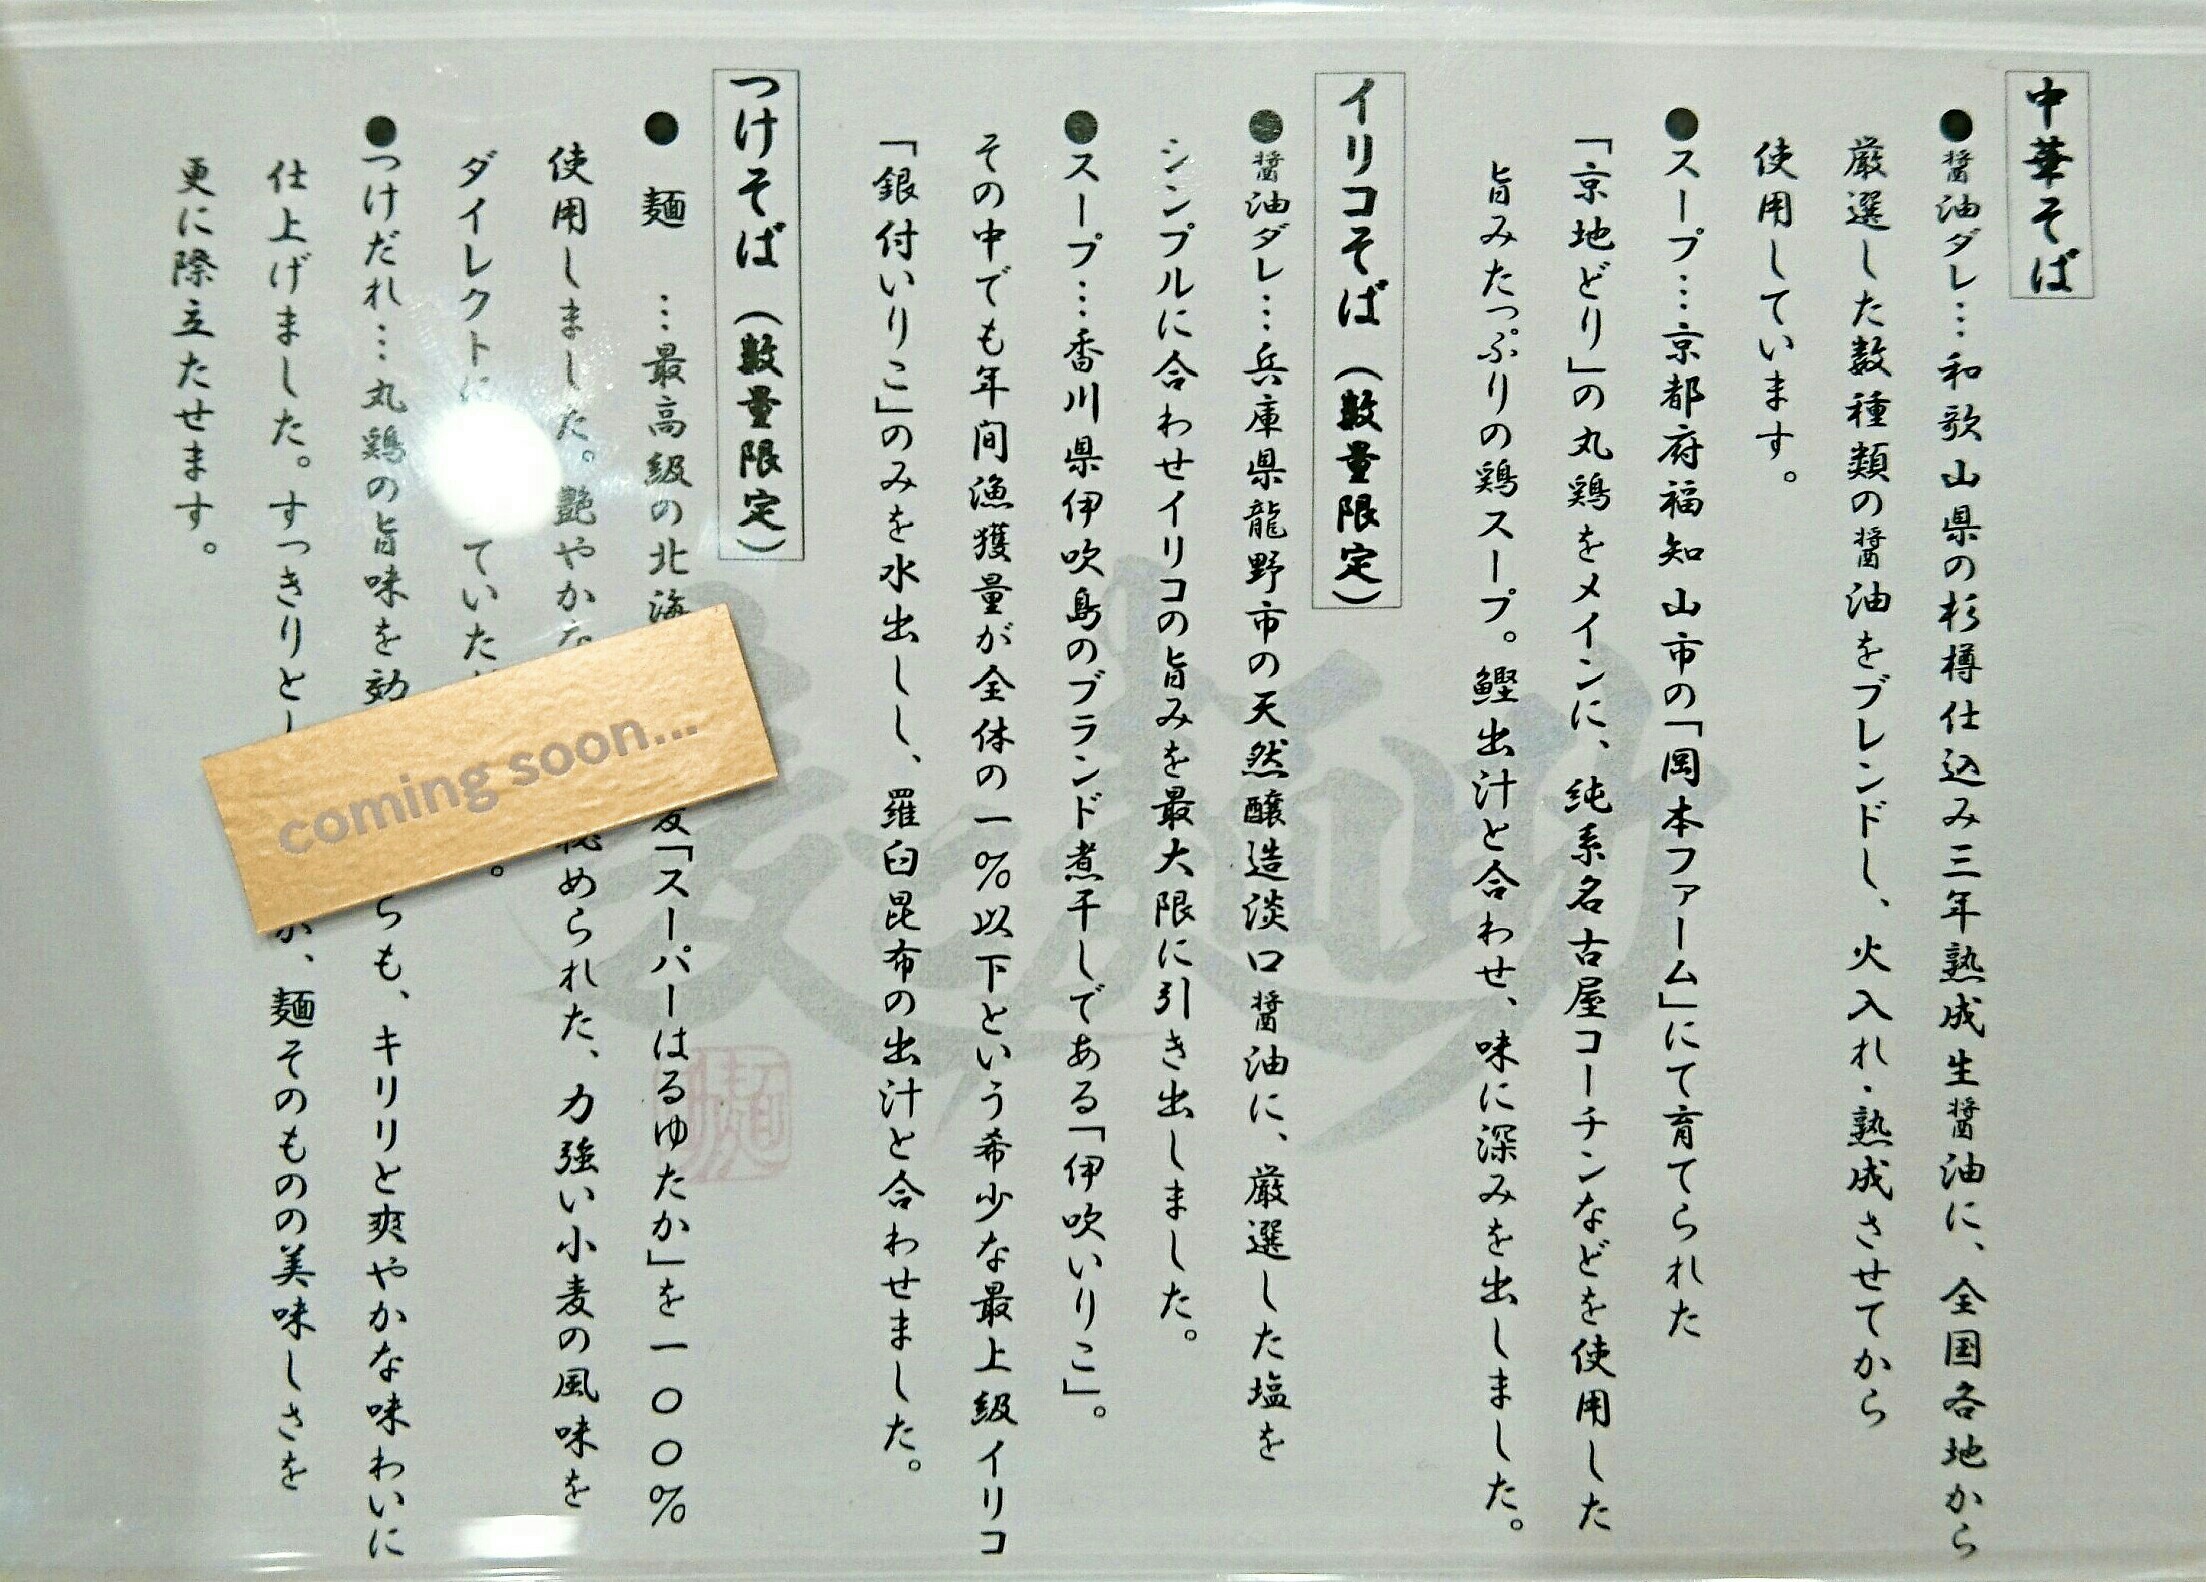 中華そば
●醤油ダレ…和歌山県の杉樽仕込み三年熟成生醤油に、全国各地から
厳選した数種類の醤油をブレンドし、火入れ・熟成させてから
使用しています。
●スープ…京都府福知山市の「岡本ファーム」にて育てられた
「京地どり」の丸鶏をメインに、純系名古屋コーチンなどを使用した
旨みたっぷりの鶏スープ。鰹出汁と合わせ、味に深みを出しました。
イリコそば（数量限定）
●醤油ダレ…兵庫県龍野市の天然醸造淡口醤油に、厳選した塩を
シンプルに合わせイリコの旨みを最大限に引き出しました。
●スープ…香川県伊吹島のブランド煮干しである「伊吹いりこ」。
その中でも年間漁獲量が全体の一％以下という希少な最上級イリコ
「銀付いりこ」のみを水出しし、羅臼昆布の出汁と合わせました。
つけそば（数量限定）
●麺…最高級の北海 「スーパーはるゆたか」を一〇〇％
使用しました。艶やかな 秘められた、力強い小麦の風味を
ダイレクトに ていた 。
●つけだれ…丸鶏の旨味を効 らも、キリリと爽やかな味わいに
仕上げました。すっきりと が、麺そのものの美味しさを
更に際立たせます。
coming soon...
麦と麺助